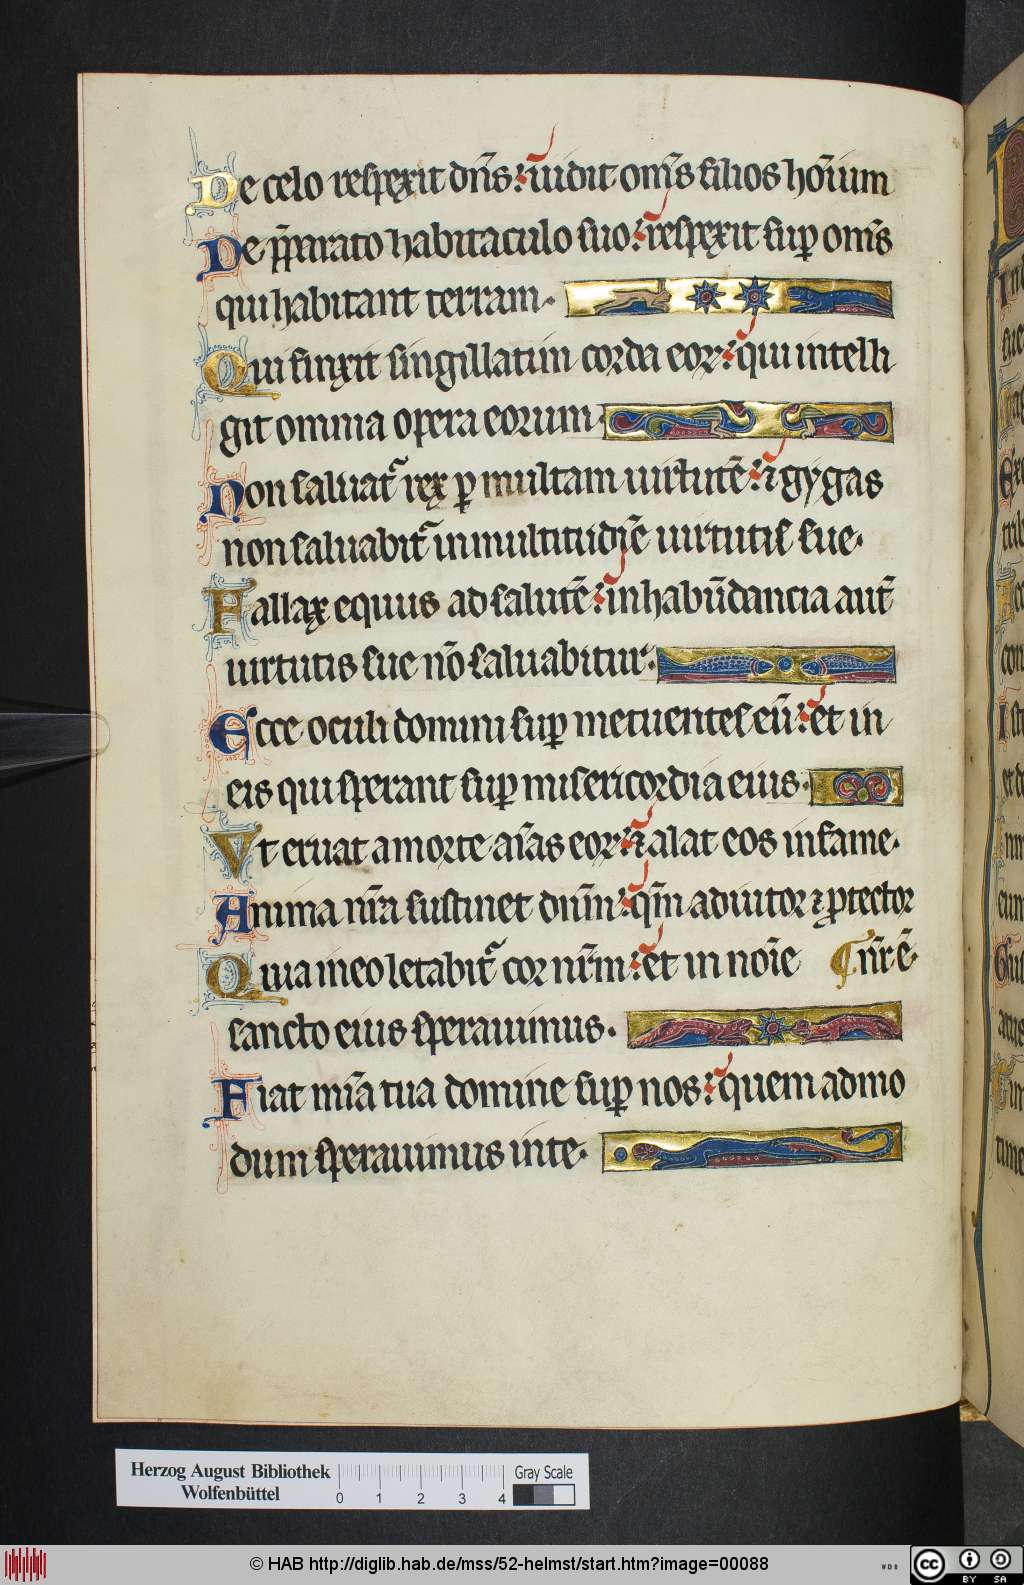 De celo respexit dn̄s: uidit om̄s filios hoīum
De p̄parato habitaculo suo: respexit sup om̄s
qui habitant terram.
Qui finxit singillatim corda eoꝝ: qui intelli
git omnia opera eorum
Non saluat᷑ rex ꝑ multam uirtutē: ⁊ gygas
non saluabit᷑ in multitudīe uirtutis sue.
Fallax equus ad salutē: in habūdancia aut̄
uirtutis sue nō saluabitur.
Ecce oculi domini sup metuentes eū: et in
eis qui sperant sup misericordia eius.
Vt eruat a morte aīas eoꝝ: ⁊ alat eos in fame.
Anima nr̄a sustinet dnm̄: qm̄ adiutor ⁊ ꝓtector
Quia in eo letabit᷑ cor nr̄m: et in noīe nr̄ ē.
sancto eius sperauimus.
Fiat mīa tua domine sup nos: quem admo
dum sperauimus in te.
Herzog August Bibliothek
Wolfenbüttel
0 1 2 3 4
Gray Scale
© HAB http://diglib.hab.de/mss/52-helmst/start.htm?image=00088
cc BY SA